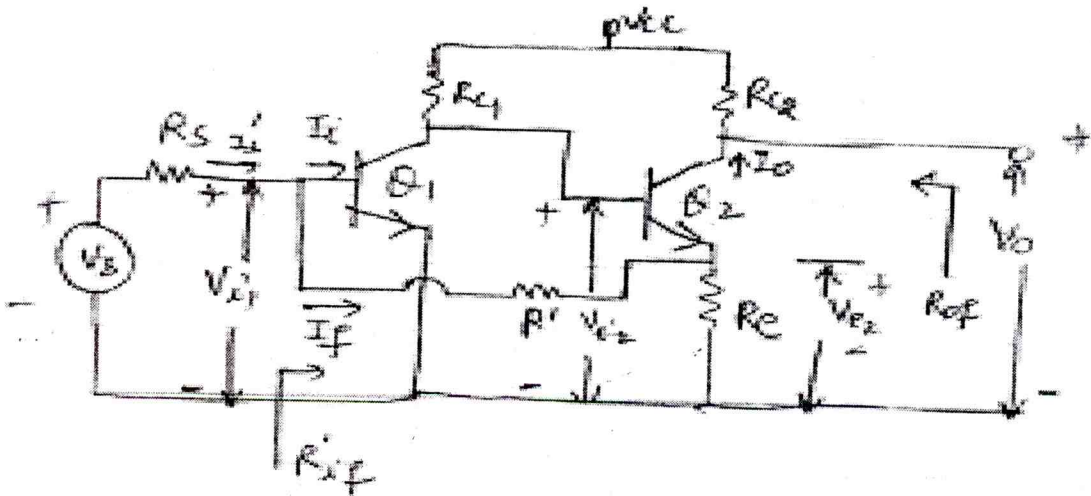 Vcc
Rc1
Rc2
+
Rs
Ii'
Ii
Io
+
+
Q1
+
Q2
Vs
Vi1
Vo
-
If
R'
Vi2
Re
+
VE2
-
Rof
-
-
-
R'if